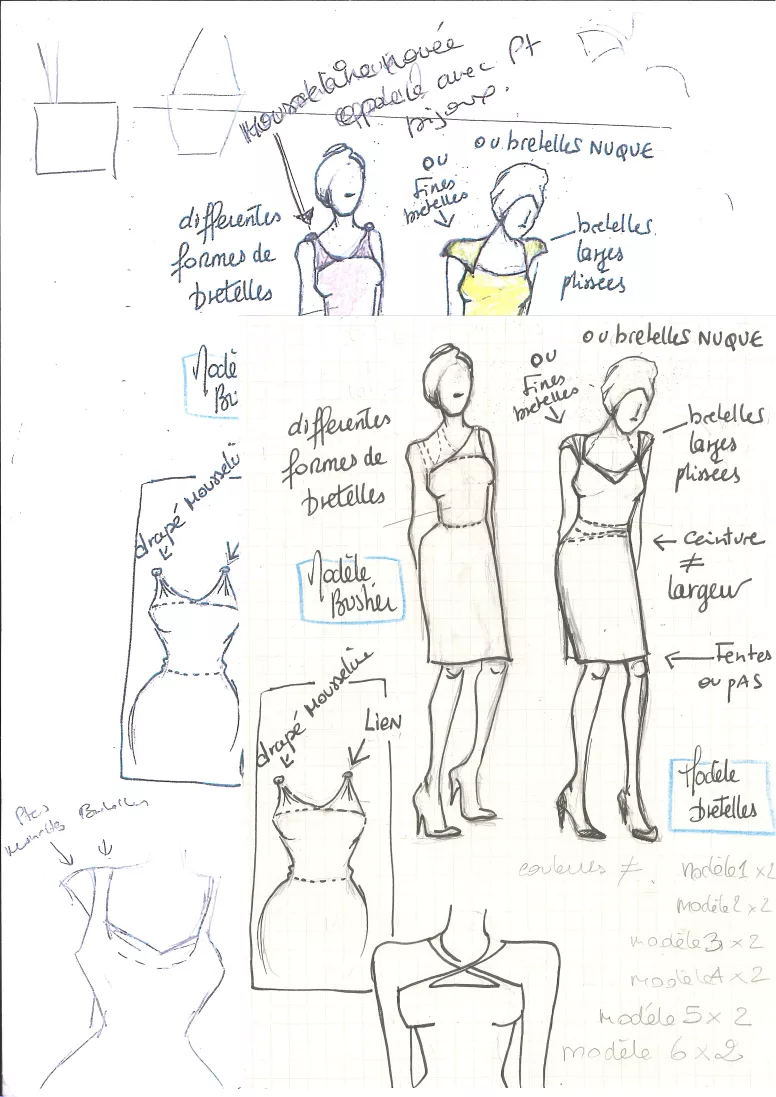 Mousseline nouée
avec Pt
bijoux.
ou bretelles NUQUE
ou
fines
bretelles
differentes
formes de
bretelles
bretelles
larges
plissées
Modè
drapé Mousseline
ou bretelles NUQUE
ou
fines
bretelles
differentes
formes de
bretelles
bretelles
larges
plissées
← Ceinture
≠
largeur
Modèle
Bushier
← Fentes
ou pAS
drapé Mousseline
Lien
Modèle
bretelles
couleurs ≠
modèle 1 x 2
modèle 2 x 2
modèle 3 x 2
modèle 4 x 2
modèle 5 x 2
modèle 6 x 2